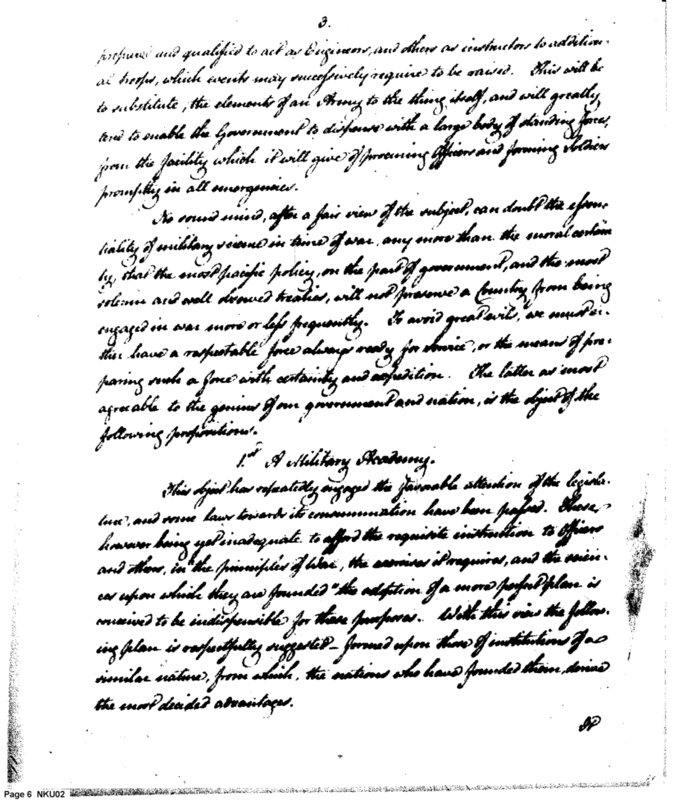 3.
prepared and qualified to act as Engineers, and others as instructors to addition-
al troops, which events may successively require to be raised. This will be
to substitute, the elements of an Army to the thing itself, and will greatly
tend to enable the Government to dispense with a large body of standing forces,
from the facility which it will give of procuring Officers and forming Soldiers
promptly in all emergencies.
No sound mind, after a fair view of the subject, can doubt the essen-
tiality of military science in time of war, any more than the moral certain-
ty, that the most pacific policy, on the part of government, and the most
solemn and well drawed treaties, will not preserve a Country from being
engaged in war more or less frequently. To avoid great evils, we must ei-
ther have a respectable force always ready for service, or the means of pre-
paring such a force with certainty and expedition. The latter as most
agreeable to the genius of our government and nation, is the object of the
following propositions.
1.st A Military Academy.
This object has repeatedly engaged the favorable attention of the legisla-
ture, and some laws towards its consummation have been passed. These,
however being yet inadequate to afford the requisite instruction to Officers
and others, in "the principles of War, the exercises it requires, and the scien-
ces upon which they are founded" the adoption of a more perfect plan is
conceived to be indispensible for these purposes. With this view the follow-
ing plan is respectfully suggested – formed upon those of institutions of a
similar nature, from which, the nations who have founded them, derive
the most decided advantages.
Page 6 NKU02